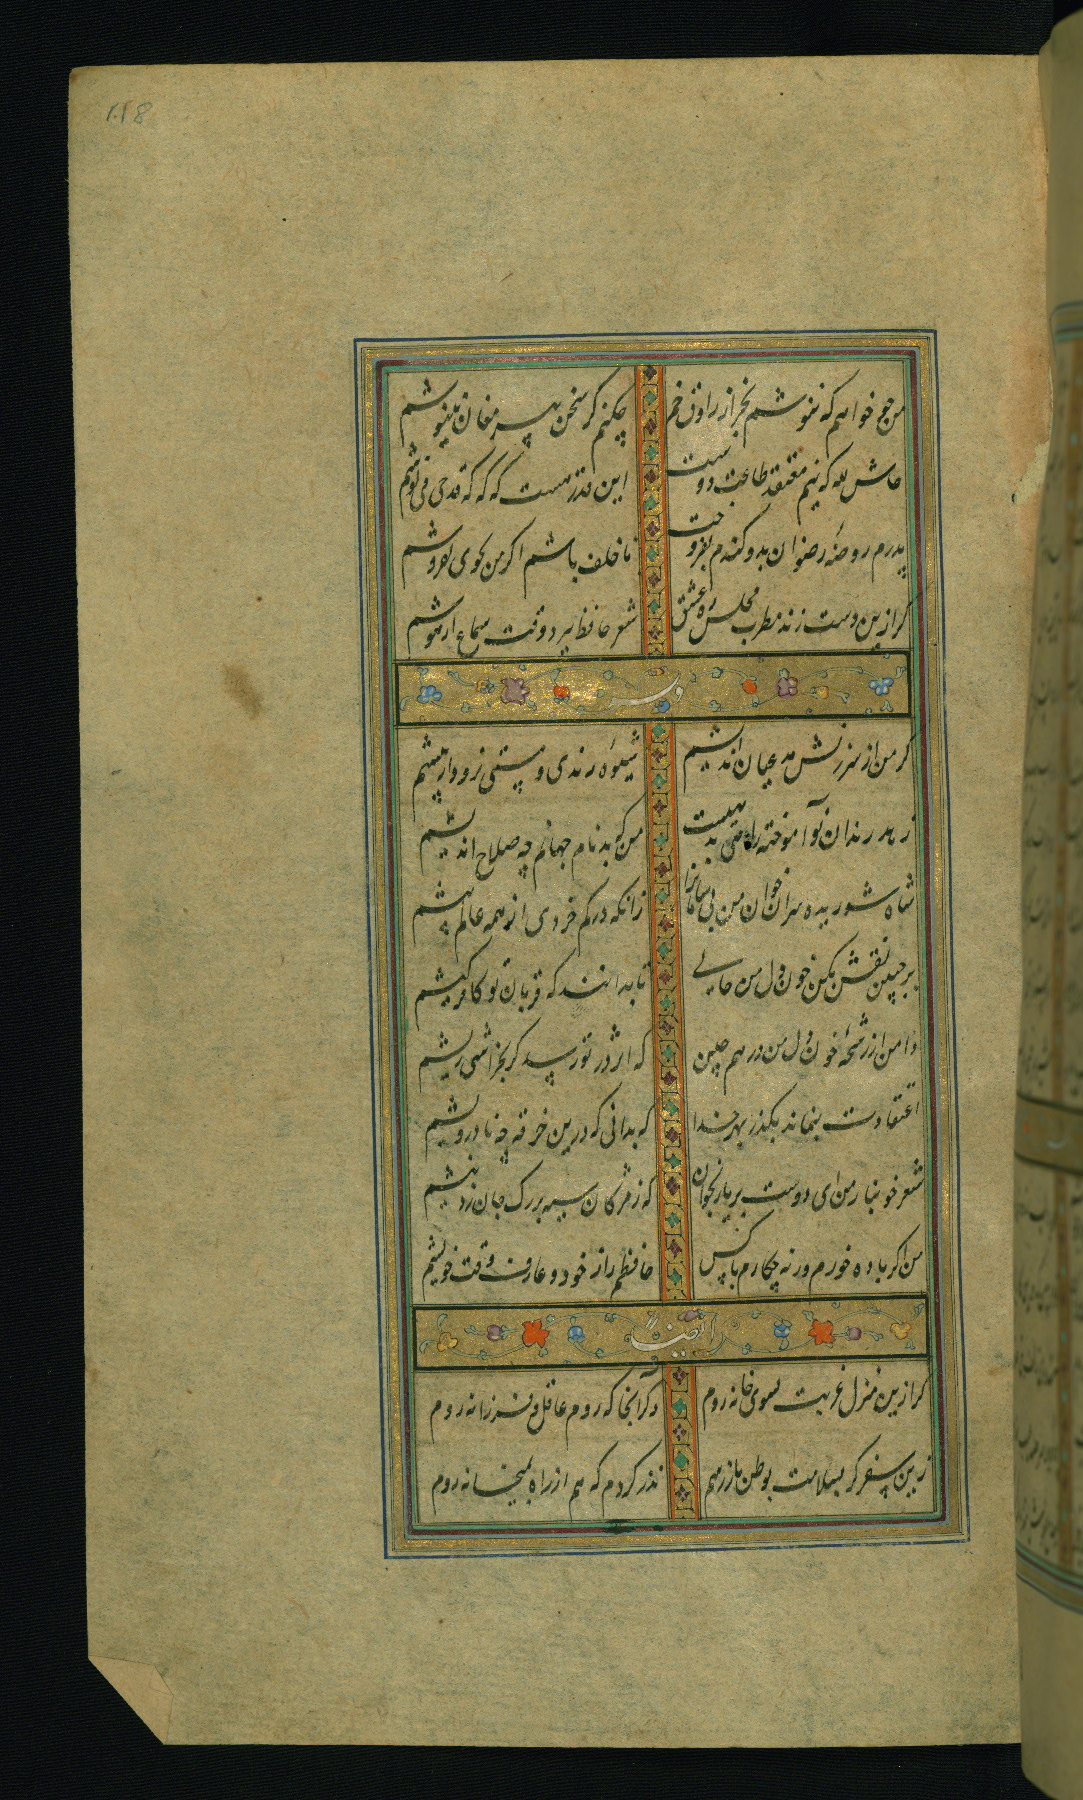 118
من چو خواهم که ننوشم بجز از راوق خم
چکنم گر سخن پیر مغان ننیوشم
حاش لله که نیم معتقد طاعت دوست
این قدر هست که گه گه قدحی می نوشم
پدرم روضهٔ رضوان بدو گندم بفروخت
ناخلف باشم اگر من بجوی نفروشم
گر ازین دست زند مطرب مجلس ره عشق
شعر حافظ ببرد وقت سماع از هوشم
وله
گر من از سرزنش مدعیان اندیشم
شیوهٔ رندی و مستی نرود از پیشم
زهد رندان نوآموخته راهی بدهیست
من که بدنام جهانم چه صلاح اندیشم
شاه شوریده سران خوان من بی سامانرا
زانکه در کم خردی از همه عالم پیشم
بر جبین نقش بکن خون دل من خالی
تا بدانند که قربان تو کافر کیشم
دامن از رشحهٔ خون دل من در هم چین
که اثر در تو رسد گر بخراشی ریشم
اعتقادت بنما بگذر بهر خدا
که بدانی که درین خرقه چه نادرویشم
شعر خونبار من ای دوست بر یار بخوان
که ز مژگان سیه بر رگ جان زد نیشم
من اگر باده خورم ورنه چکارم با کس
حافظم راز خود و عارف وقت خویشم
ایضاً
گر ازین منزل غربت بسوی خانه روم
دگر آنجا که روم عاقل و فرزانه روم
زین سفر گر بسلامت بوطن باز رسم
نذر کردم که هم از راه بمیخانه روم